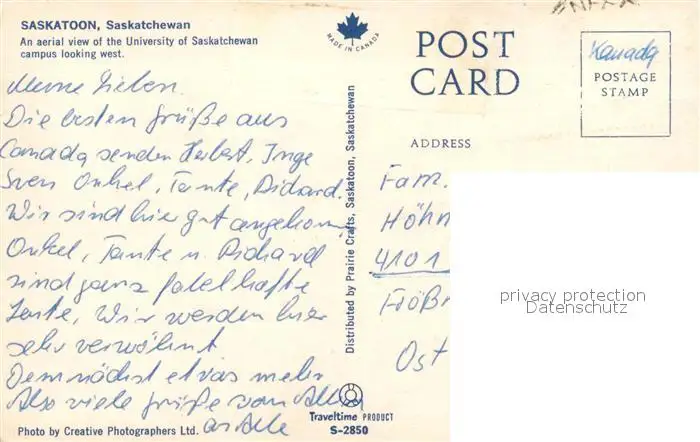 SASKATOON, Saskatchewan
An aerial view of the University of Saskatchewan
campus looking west.
MADE IN CANADA
POST
CARD
Kanada
POSTAGE
STAMP
ADDRESS
Meine Lieben.
Die besten Grüße aus
Canada senden Herbert, Inge
Sven Onkel, Tante, Richard.
Wir sind hier gut angekom
Onkel, Tante u. Richard
sind ganz fabelhafte
Leute, Wir werden hier
sehr verwöhnt
Demnächst etwas mehr
Also viele Grüße von Allen
an Alle
Distributed by Prairie Crafts, Saskatoon, Saskatchewan
Fam.
Höhn
4101
Flöß
Ost
privacy protection
Datenschutz
Traveltime PRODUCT
S-2850
Photo by Creative Photographers Ltd.